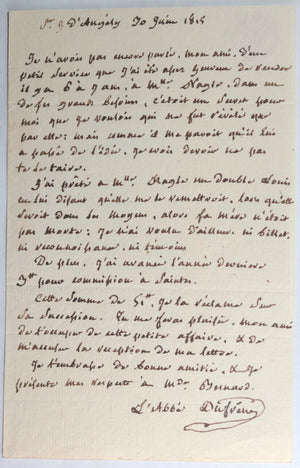 St. J. d'Angély 30 Juin 1815
Je n'avois pas encore parlé, mon ami, d'un
petit service que j'ai été assez heureux de rendre
il y a 6 à 7 ans, à Mlle. Nagle, dans un
de ses grands besoins, c'étoit un secret pour
moi que je voulois qui ne fut révélé que
par elle: mais comme il me paroit qu'il lui
a passé de l'idée, je crois devoir ne pas
te le taire.
J'ai prêté à Mlle. Nagle un double Louis
en lui disant qu'elle me le remettroit, lors qu'elle
seroit dans les moyens, alors sa mère n'étoit
pas morte: Je n'ai voulu d'ailleurs ni billet,
ni reconnoissance, ni témoins
De plus, j'ai avancé l'année dernière
3# pour commission à Saintes.
Cette somme de 51#, je la réclame sur
sa succession. Tu me feras plaisir, mon ami
de t'occuper de cette petite affaire, & de
m'accuser la réception de ma lettre.
Je t'embrasse de bonne amitié, & je
présente mes respects à Mde. Bernard.
L'Abbé